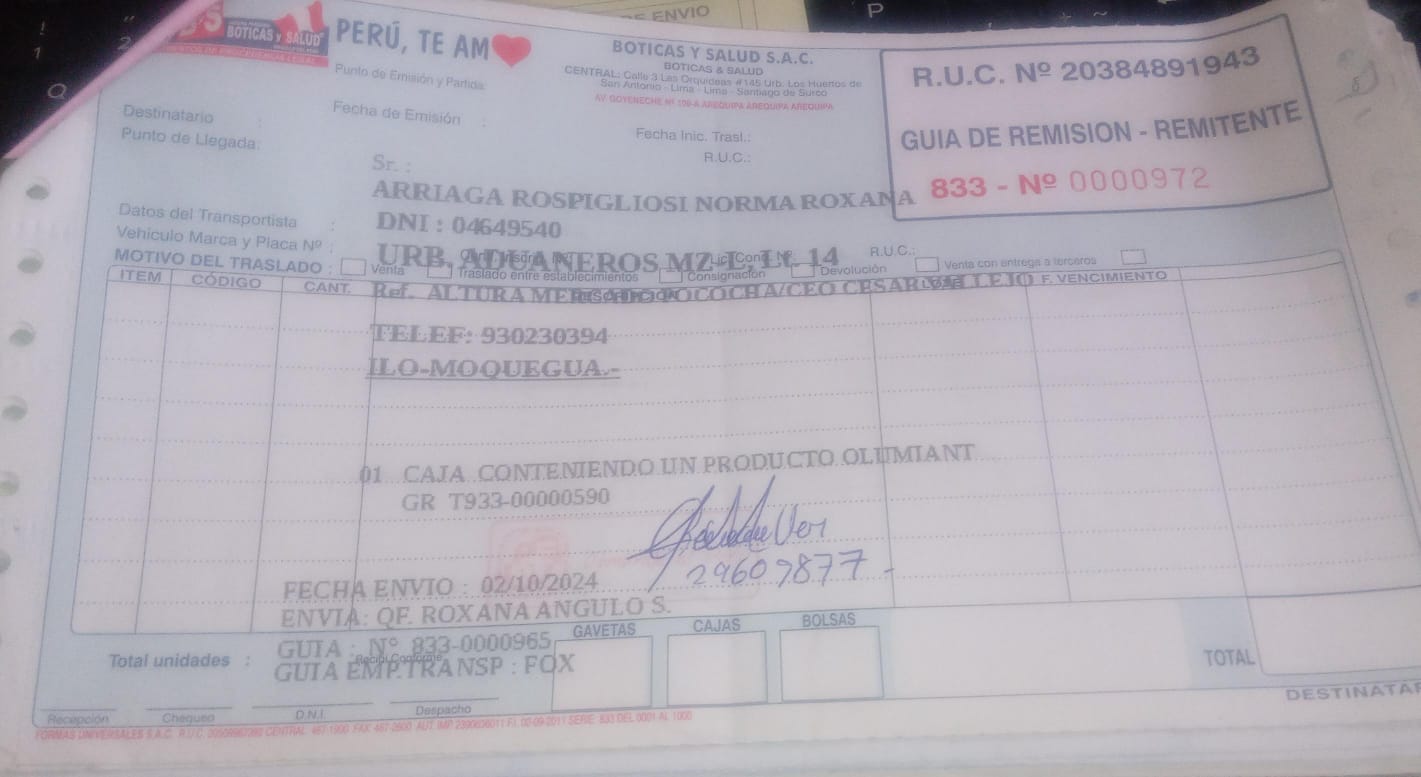 DE ENVIO
BOTICAS Y SALUD
PERÚ, TE AM
Punto de Emisión y Partida:
Fecha de Emisión :
BOTICAS Y SALUD S.A.C.
BOTICAS & SALUD
CENTRAL: Calle 3 Las Orquideas #145 Urb. Los Huertos de
San Antonio - Lima - Lima - Santiago de Surco
AV. GOYENECHE Nº 109-A AREQUIPA AREQUIPA AREQUIPA
Fecha Inic. Trasl.:
R.U.C.:
R.U.C. Nº 20384891943
GUIA DE REMISION - REMITENTE
833 - Nº 0000972
Destinatario :
Punto de Llegada:
Sr. :
ARRIAGA ROSPIGLIOSI NORMA ROXANA
DNI : 04649540
URB. ADUANEROS MZ-I, Lt. 14
Ref. ALTURA
TELEF: 930230394
ILO-MOQUEGUA.-
Datos del Transportista :
Vehículo Marca y Placa Nº :
R.U.C.:
MOTIVO DEL TRASLADO : Venta Traslado entre establecimientos Consignación Devolución Venta con entrega a terceros
ITEM CÓDIGO CANT. DESCRIPCION LOTE F. VENCIMIENTO
01 CAJA CONTENIENDO UN PRODUCTO OLUMIANT
GR T933-00000590
29609877
FECHA ENVIO : 02/10/2024
ENVIA: QF. ROXANA ANGULO S.
GUIA : Nº 833-0000965
GUIA EMP.TRANSP : FOX
Recibí Conforme
Total unidades :
GAVETAS CAJAS BOLSAS
TOTAL
Recepción Chequeo D.N.I. Despacho
DESTINATAR
FORMAS UNIVERSALES S.A.C.
SERIE 833 DEL 0001 AL 1000